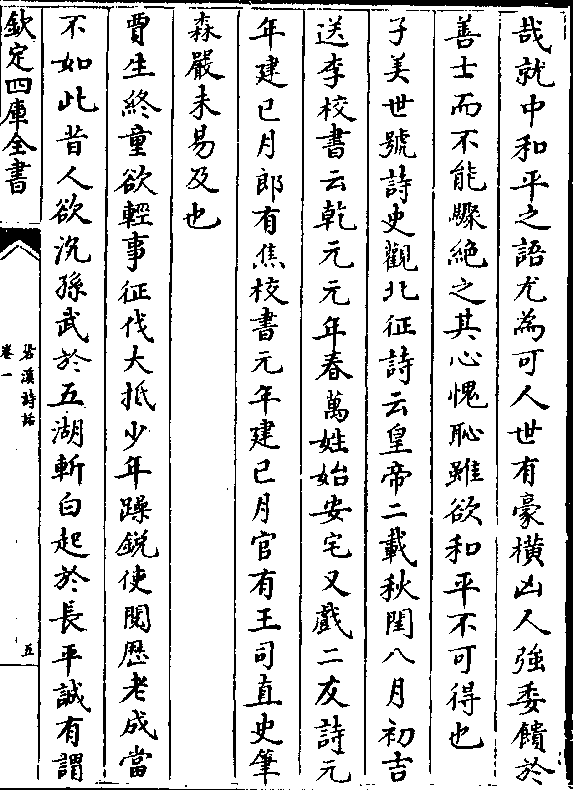 哉就中和平之語尤為可人世有豪橫凶人強委饋於
善士而不能驟絶之其心愧恥雖欲和平不可得也
子美世號詩史觀北征詩云皇帝二載秋閏八月初吉
送李校書云乾元元年春萬姓始安宅又戲二友詩元
年建巳月郎有焦校書元年建巳月官有王司直史筆
森嚴未易及也
賈生終童欲輕事征伐大抵少年躁鋭使閱歴老成當
不如此昔人欲沉孫武於五湖斬白起於長平誠有謂
欽定四庫全書
䂬溪詩話
卷一
五